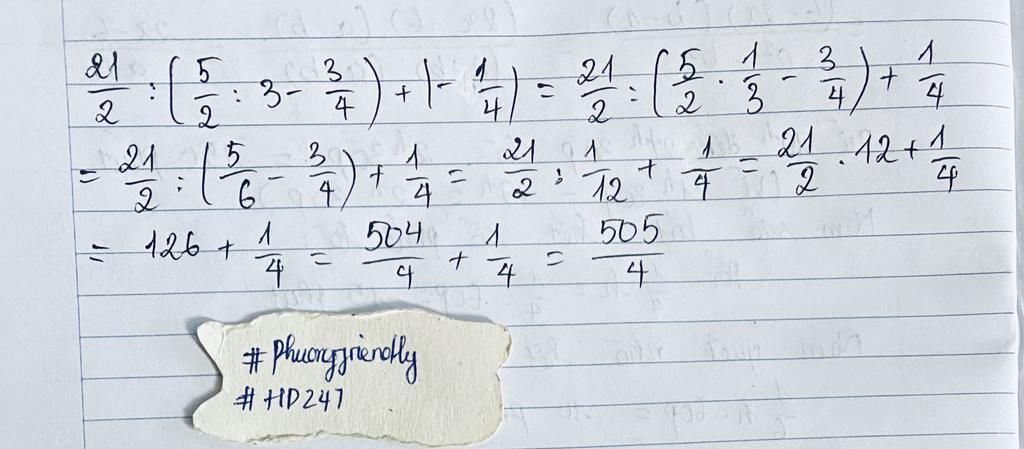 21/2 : (5/2 : 3 - 3/4) + |- 1/4| = 21/2 : (5/2 · 1/3 - 3/4) + 1/4
= 21/2 : (5/6 - 3/4) + 1/4 = 21/2 : 1/12 + 1/4 = 21/2 · 12 + 1/4
= 126 + 1/4 = 504/4 + 1/4 = 505/4
# Phuongfriendly
# HD247